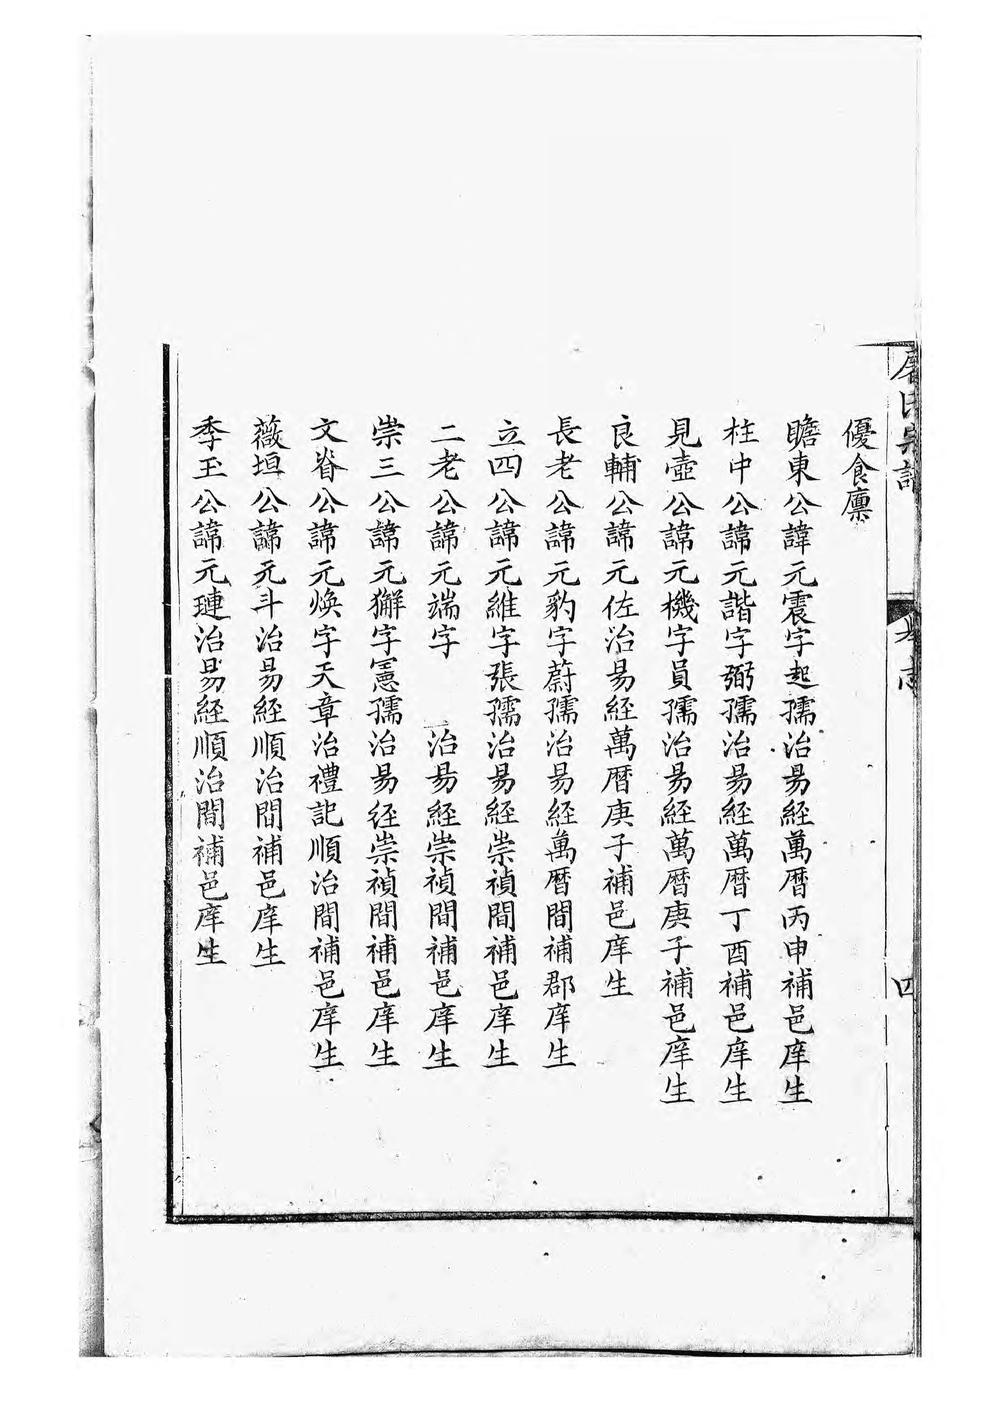 優食廪
瞻東公諱元震字起孺治易經萬曆丙申補邑庠生
柱中公諱元諧字弼孺治易經萬曆丁酉補邑庠生
見壺公諱元機字員孺治易經萬曆庚子補邑庠生
良輔公諱元佐治易經萬曆庚子補邑庠生
長老公諱元豹字蔚孺治易經萬曆間補郡庠生
立四公諱元維字張孺治易經崇禎間補邑庠生
二老公諱元端字 治易經崇禎間補邑庠生
崇三公諱元獬字憲孺治易経崇禎間補邑庠生
文眷公諱元煥字天章治禮記順治間補邑庠生
薇垣公諱元斗治易經順治間補邑庠生
季玉公諱元璉治易經順治間補邑庠生
四